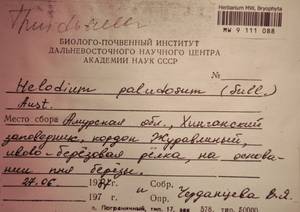 Herbarium MW, Bryophyta
MW 9 111 088
БИОЛОГО-ПОЧВЕННЫЙ ИНСТИТУТ
ДАЛЬНЕВОСТОЧНОГО НАУЧНОГО ЦЕНТРА
АКАДЕМИИ НАУК СССР
№
Helodium paludosum (Sull.)
Aust.
Место сбора Амурская обл., Хинганский
заповедник, кордон Журавлиный,
ивово-берёзовая рёлка, на основа-
нии пня березы.
27.06 1987 г. Собр. Черданцева В.Я.
197 г. Опр.
п. Пограничный, тип. 17, зак. 578, т.